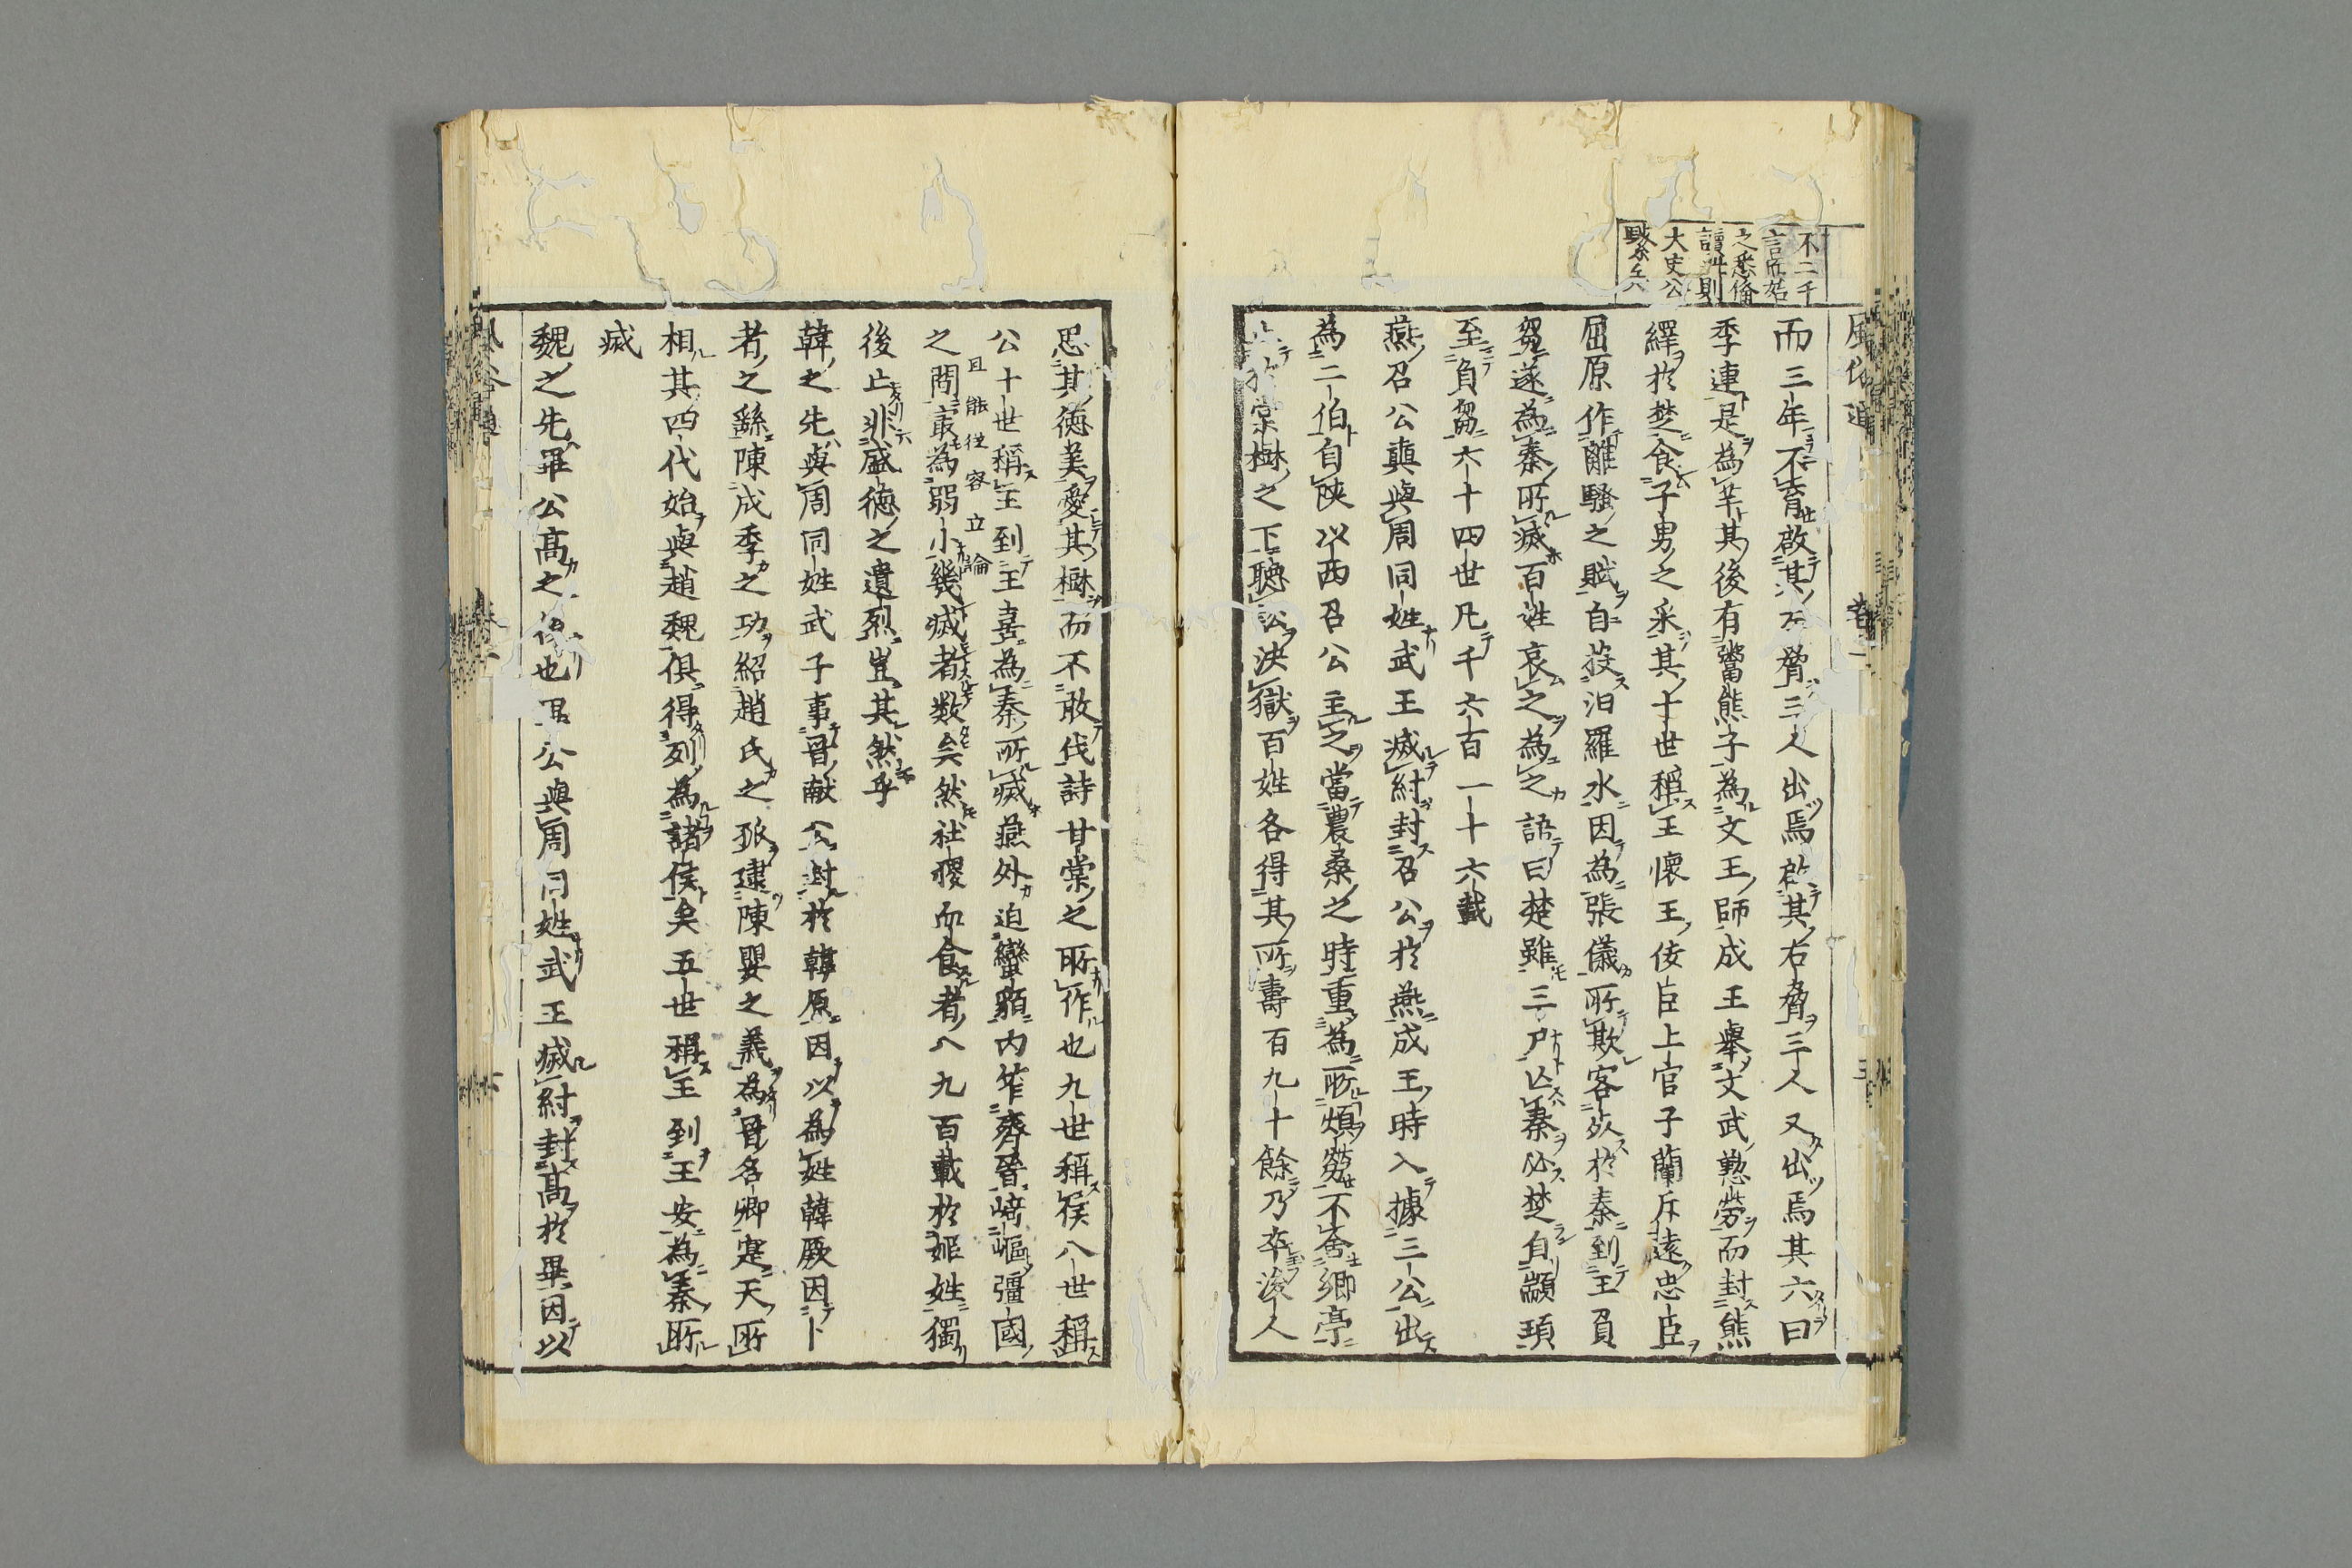 不二千
言而始
之悉備
讀此則
大史公
而三年不育啟其左脅三人出焉啟其右脅三人又出焉其六曰
季連是為羋其後有鬻熊子為文王師成王舉文武懃勞而封熊
繹於楚食子男之采其十世稱王懷王佞臣上官子蘭斥遠忠臣
屈原作離騷之賦自投汨羅水因為張儀所欺客死於秦到王負
芻遂為秦所滅百姓哀之為之語曰楚雖三戶亾秦必楚自顓頊
至負芻六十四世凡千六百一十六載
燕召公奭與周同姓武王滅紂封召公於燕成王時入據三公出
為二伯自陝以西召公主之當農桑之時重為所煩勞不舍鄉亭
於棠樹之下聽訟決獄百姓各得其所壽百九十餘乃卒後人
思其德美愛其樹而不敢伐詩甘棠之所作也九世稱侯八世稱
公十世稱王到王喜為秦所滅燕外迫蠻貊內笮齊晉崎嶇彊國
且能從容立論
之間最為弱小幾滅者數矣然社稷血食者八九百載於姬姓獨
後亾非盛德之遺烈豈其然乎
韓之先與周同姓武子事晉獻公封於韓原因以為姓韓厥因卜
者之繇陳成季之功紹趙氏之孤建陳嬰之義為晉名卿寔天所
相其四代始與趙魏俱得列為諸侯矣五世稱王到王安為秦所
滅
魏之先畢公高之後也畢公與周同姓武王滅紂封高於畢因以